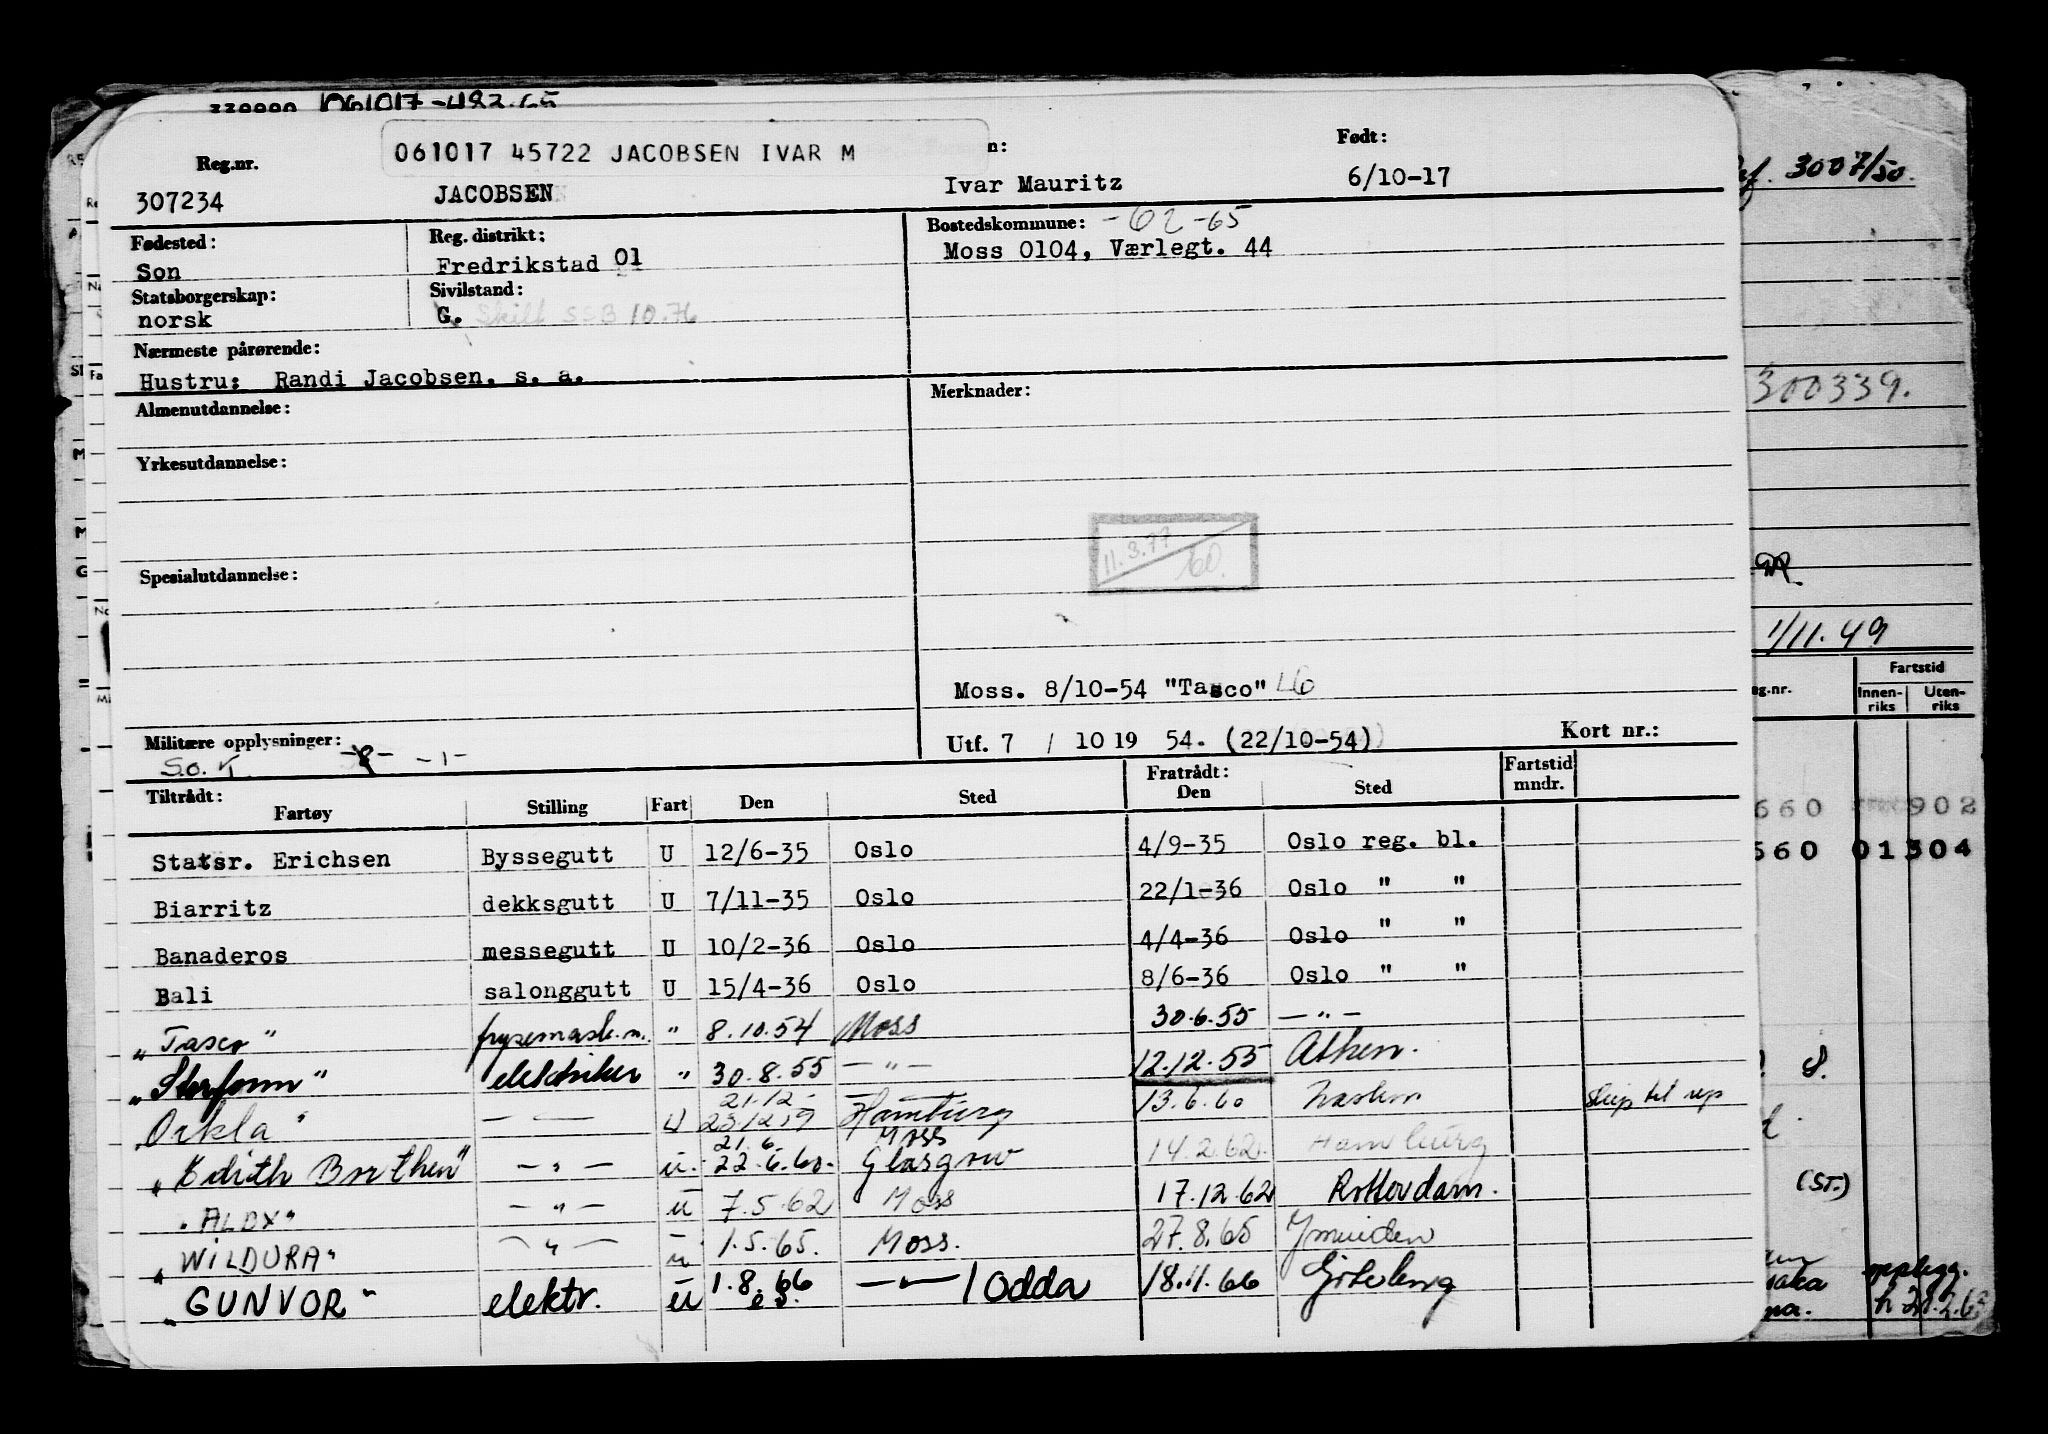 061017-482.65
061017 45722 JACOBSEN IVAR M
n:
Født:
Reg.nr.
307234 JACOBSEN Ivar Mauritz 6/10-17
Fødested: Reg. distrikt: Bostedskommune: -62-65
Son Fredrikstad 01 Moss 0104, Værlegt. 44
Statsborgerskap: Sivilstand:
norsk G. Skilt SSB 10.76
Nærmeste pårørende:
Hustru; Randi Jacobsen. s. a.
Almenutdannelse: Merknader:
Yrkesutdannelse:
11.3.77. 60.
Spesialutdannelse:
Moss. 8/10-54 "Tasco" L6
Militære opplysninger: Utf. 7 / 10 19 54. (22/10-54) Kort nr.:
S.o. K. -1-
Tiltrådt: Fratrådt: Fartstid
Fartøy Stilling Fart Den Sted Den Sted mndr.
Statsr. Erichsen Byssegutt U 12/6-35 Oslo 4/9-35 Oslo reg. bl.
Biarritz dekksgutt U 7/11-35 Oslo 22/1-36 Oslo " "
Banaderos messegutt U 10/2-36 Oslo 4/4-36 Oslo " "
Bali salonggutt U 15/4-36 Oslo 8/6-36 Oslo " "
"Tasco" frysemask.m. " 8.10.54 Moss 30.6.55 - " -
"Storfonn" elektriker " 30.8.55 - " - 12.12.55 Athen.
21.12.
"Orkla" - " - U 23.12.59 Hamburg 13.6.60 skip til rep
21.6. Moss
"Edith Borthen" - " - u. 22.6.60. Glasgow 14.2.62. Hamburg
"ALDX" - " - u 7.5.62 Moss 17.12.62 Rotterdam.
"WILDURA" - " - u 1.5.65. Moss. 27.8.65 Ymuiden
"GUNVOR" elektr. u 1.8.66 - " - / Odda 18.11.66 Göteborg
3007/50.
300339.
1/11.49
Fartstid
Innen-riks Uten-riks
660 902
660 01304
(ST.)
opplegg.